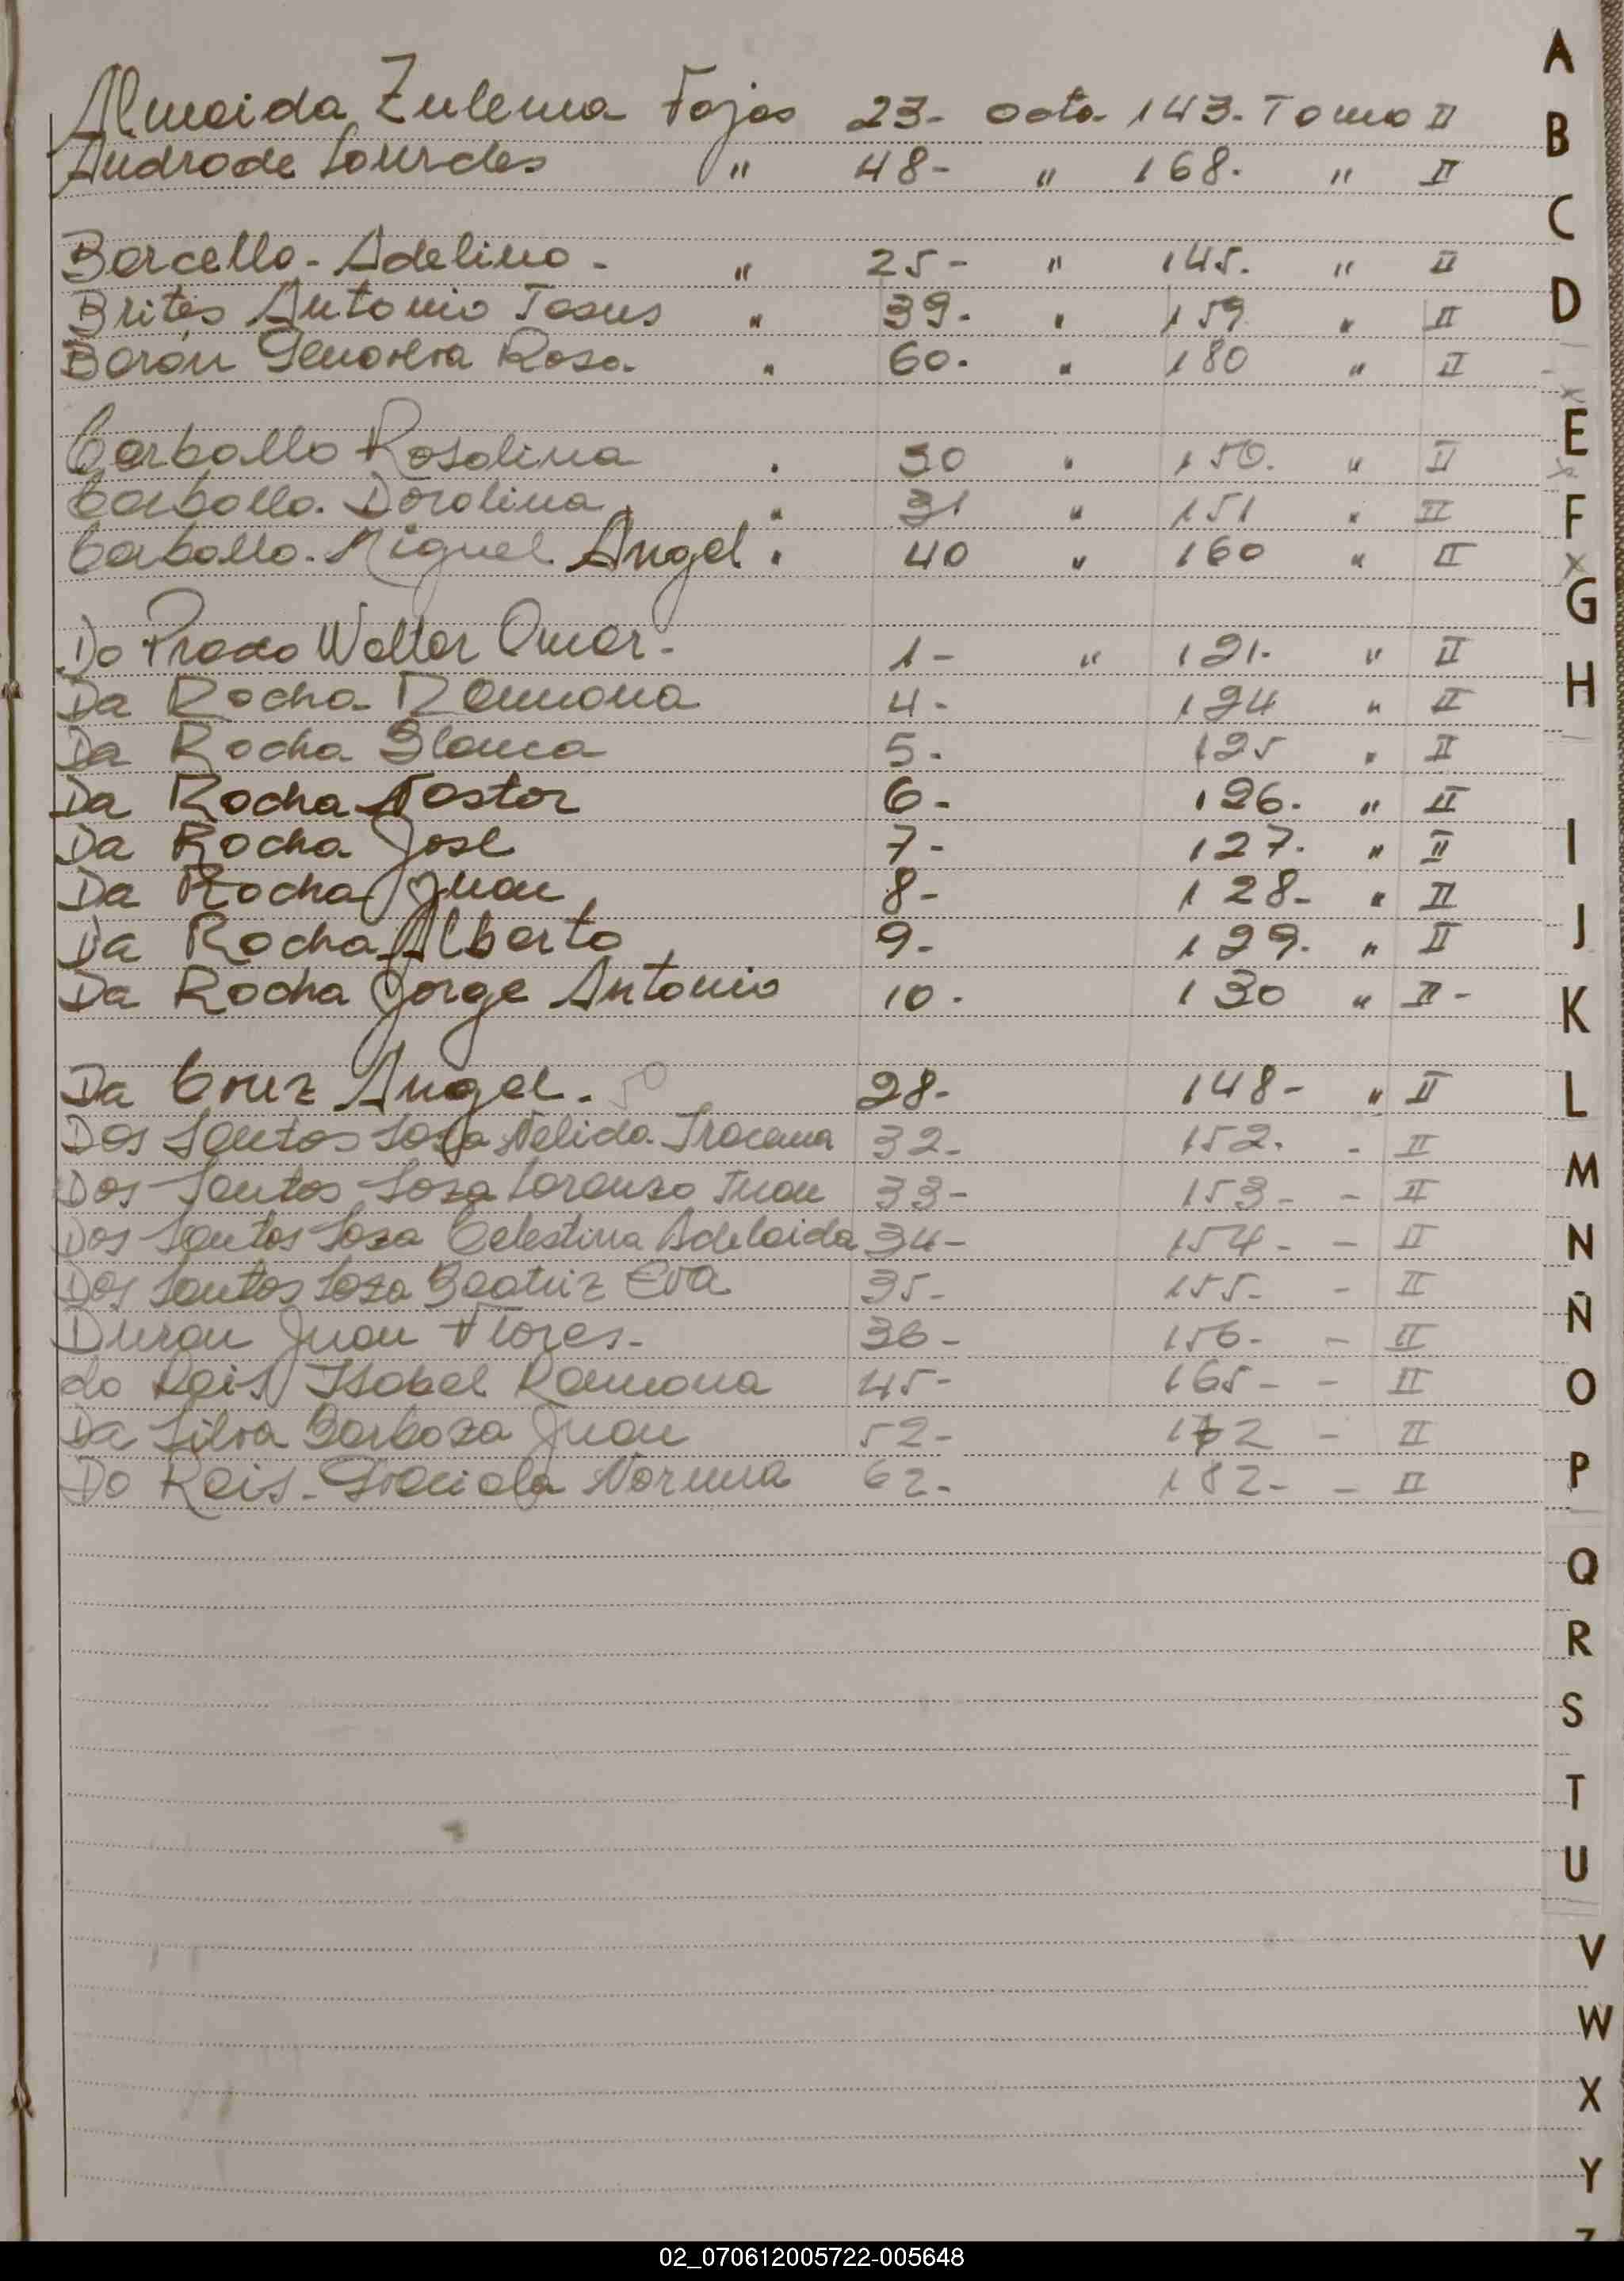 Almeida Zulema Fojas 23- acta- 143. Tomo II
Andrade Lourdes " 48- " 168. " II
Barcello - Adelino - " 25- " 145. " II
Brites Antonio Jesus " 39- " 159 " II
Barón Genoveva Rosa. " 60. " 180 " II
Carballo Rosalina " 30 " 150. " II
Carballo. Doralina " 31 " 151 " II
Carballo. Miguel Angel " 40 " 160 " II
Do Prado Walter Omar - 1- " 121. " II
Da Rocha Ramona 4- 124 " II
Da Rocha Blanca 5. 125 " II
Da Rocha Nestor 6- 126. " II
Da Rocha José 7- 127. " II
Da Rocha Juan 8- 128- " II
Da Rocha Alberto 9- 129. " II
Da Rocha Jorge Antonio 10. 130 " II -
Da Cruz Angel. 50 28- 148- " II
Dos Santos Sosa Nelida 32- 152. - II
Dos Santos Sosa Lorenzo Juan 33- 153- - II
Dos Santos Sosa Celestina Adelaida 34- 154- - II
Dos Santos Sosa Beatriz Eva 35- 155- - II
Duran Juan Flores- 36- 156- - II
do Reis Isabel Ramona 45- 165- - II
Da Silva Barboza Juan 52- 172 - II
Do Reis- Graciela Norma 62- 182- - II
A
B
C
D
E
F
G
H
I
J
K
L
M
N
Ñ
O
P
Q
R
S
T
U
V
W
X
Y
Z
02_070612005722-005648